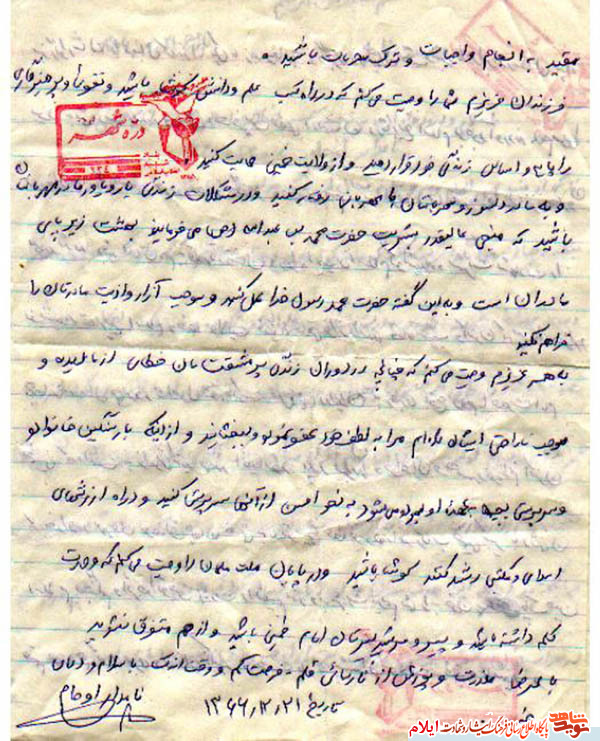 مقید به انجام واجبات و ترک محرمات باشید.
فرزندان عزیزم شما را وصیت می‌کنم که در راه کسب علم و دانش کوشا باشد و تقوی و پرهیزگاری
را پایه و اساس زندگی خود قرار دهید و از ولایت خمینی حمایت کنید
و به مادر دلسوز و مهربانتان با مهربانی رفتار کنید و در مشکلات زندگی یار و یاور مادر مهربانتان
باشید که منجی عالیقدر بشریت حضرت محمد بن عبداله (ص) می‌فرمایند بهشت زیر پای
مادران است و به این گفته حضرت محمد رسول خدا عمل کنید و موجب آزار و اذیت مادرتان را
فراهم نکنید
به همسر عزیزم وصیت می‌کنم که چنانچه در دوران زندگی پر مشقتمان خطای از ما دیده و
موجب ناراحتی ایشان شده‌ام مرا به لطف خود عفو نموده و ببخشایند و از اینکه بار سنگین خانواده
و سرپرستی بچه‌ها بعهده او سپرده می‌شود به نحو احسن از آنها سرپرستی کنید و در راه ارزشهای
اسلامی و مکتبی رشد کنند کوشا باشید و در پایان ملت مسلمان را وصیت می‌کنم که وحدت
کلمه داشته باشید و پیرو رهبرتان امام خمینی باشید و از هم متفرق نشوید
با عرض معذرت و پوزش از نارسائی قلم - فرصت کم و وقت اندک با سلام و
تاریخ ۱۳۶۶/۲/۲۱
دره شهر
نوید شاهد
پایگاه اطلاع رسانی فرهنگ ایثار و شهادت ایلام